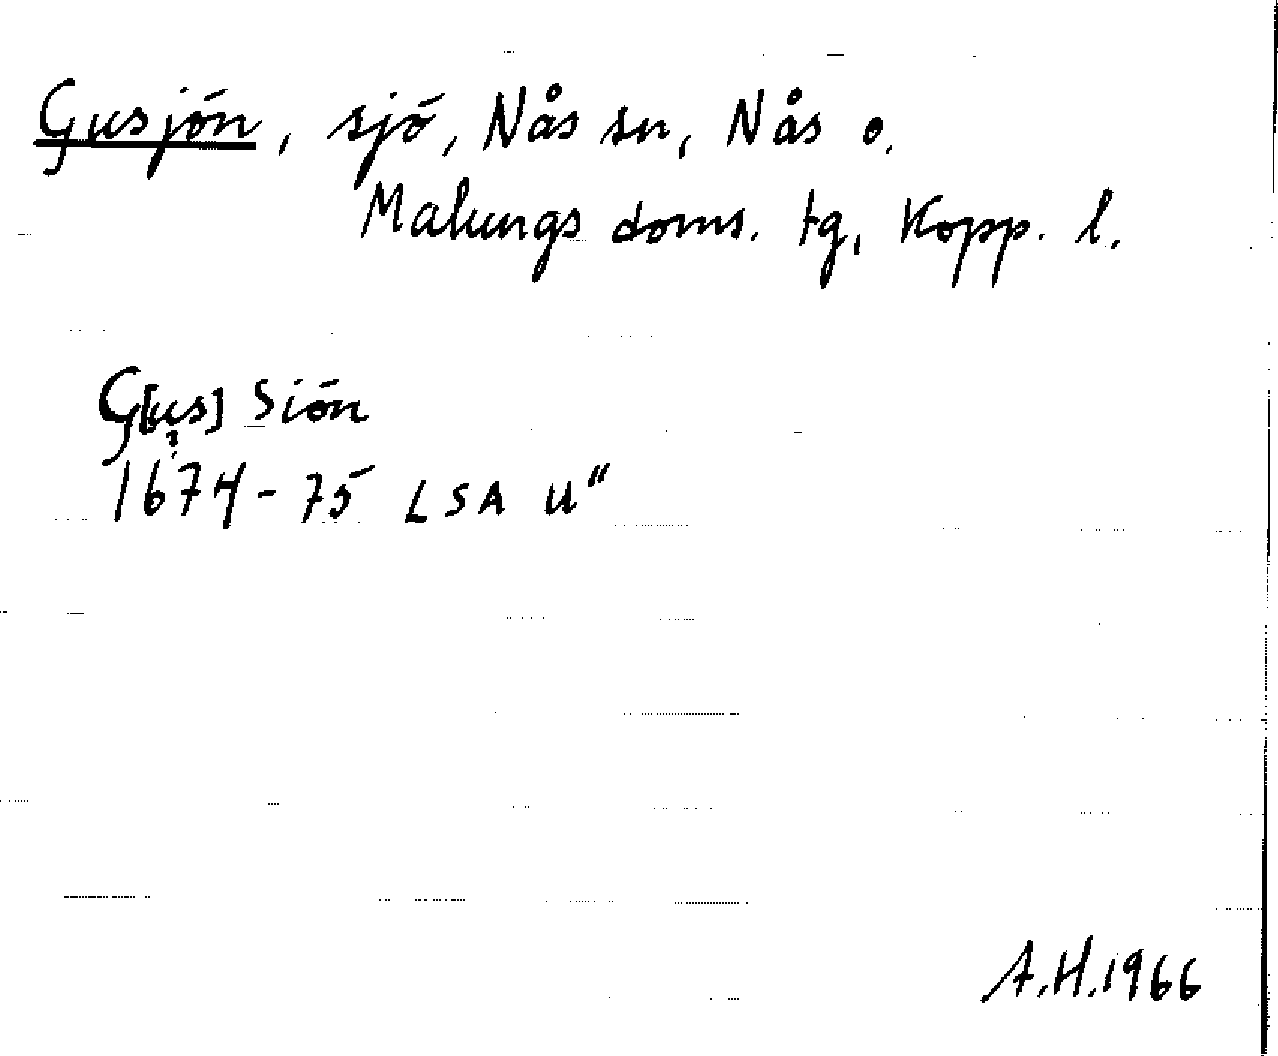 Gusjön, sjö, Nås sn, Nås o.
Malungs doms. tg, Kopp. l.
G[us] Siön
?
1674-75 LSA U"
A.H.1966